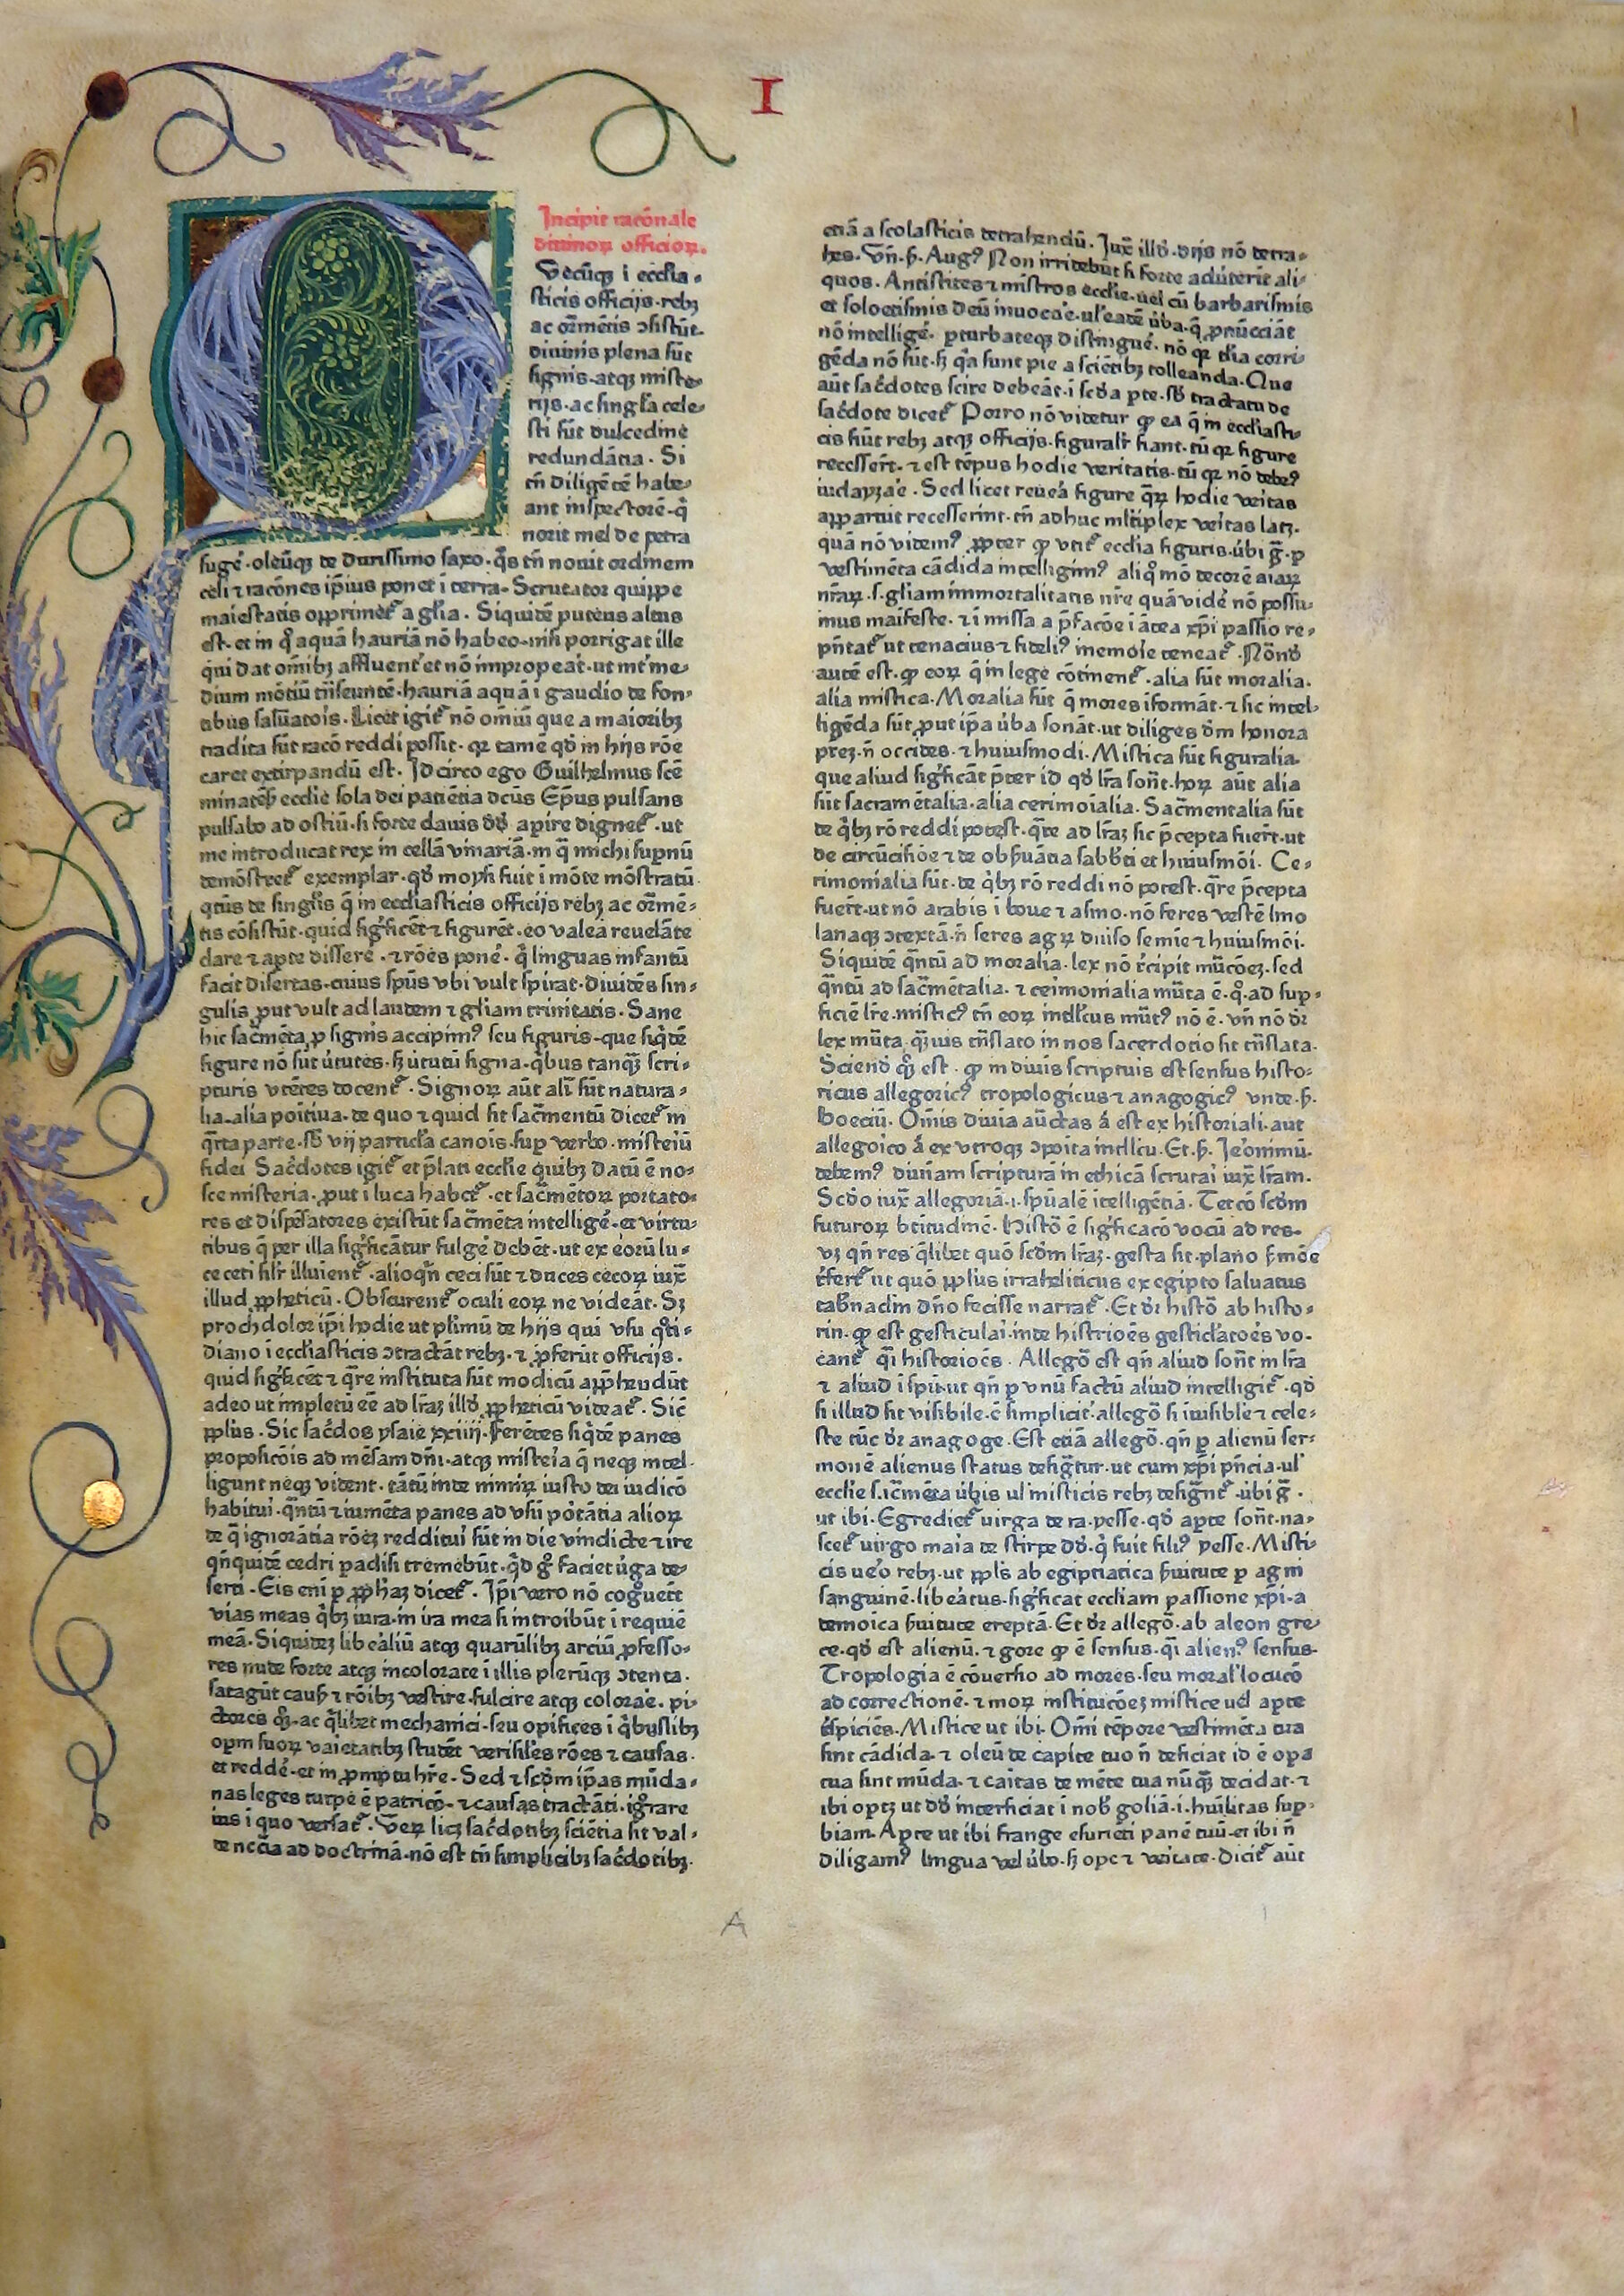 I
Incipit racōnale
diuinoꝝ officioꝝ.
Q
Vecūqꝫ ī ecclia-
sticis officijs·rebꝫ
ac orn̄mētis ↄsistūt·
diuinis plena sūt
signis·atqꝫ miste-
rijs·ac singl'a cele-
sti sūt dulcedinē
redundātia· Si
tn̄ diligētē habe-
ant inspectorē·q̄
norit mel de petra
sugē·oleūqꝫ de durissimo saxo·q̄s tn̄ nouit ordinem
celi ⁊ racōnes ip̄ius ponet ī terra· Scrutator quippe
maiestatis opprimet᷑ a gl̄ia· Siquidē puteus altus
est·et in q̊ aquā hauriā nō habeo·nisi porrigat ille
qui dat om̄ibꝫ affluent᷑ et nō impropeāt·ut int᷑ me-
dium mōtiū trāseuntē·hauriā aquā ī gaudio de fon-
tibus saluatoīs· Licet igit᷑ nō om̄iū que a maioribꝫ
tradita sūt racō reddi possit· qꝛ tamē qd̄ in hijs rōe
caret extirpandū est· Idcirco ego Guilhelmus scē
minateñ ecclie sola dei patiētia dcūs Ep̄us pulsans
pulsabo ad ostiū·si forte clauis dd̄ apire dignet᷑·ut
me introducat rex in cellā vinariā·in q̄ michi sup̄nū
demōstret᷑ exemplar·qd̄ moysi fuit ī mōte mōstratū
qtūs de singl̄is q̄ in ecclīasticis officijs rebꝫ ac orn̄mē-
tis cōsistūt·quid sig̊ficēt ⁊ figurēt·eo valeā reuelāte
clare ⁊ apte dissere·⁊ rōes ponē· q̄ linguas infantū
facit disertas·cuius sp̄us vbi vult spirat·diuidēs sin-
gulis ꝓut vult ad laudem ⁊ gl̄iam trinitatis· Sane
hic sac̄mēta ꝓ signis accipim⁹ seu figuris·que siq̄dē
figure nō sūt ūtutes·sꝫ ūtutū signa·q̄bus tanq̄ꝫ scri-
pturis vtētes docent᷑· Signoꝝ aūt alī sūt natura-
lia·alia poītiua·de quo ⁊ quid sit sac̄mentū dicet᷑ in
q̄rta parte·sb̄ vij particl̄a canoīs·sup̱ verbo·misteīū
fidei Sac̄dotes igit᷑ et p̄lati ecclie quibꝫ datū ē no-
sce misteria· ꝓut ī luca habet᷑· et sac̄mētoꝝ portato-
res et disp̄satores existūt sac̄mēta intelligē·et virtu-
tibus q̄ per illa sig̊ficātur fulgē debēt·ut ex eorū lu-
ce ceti sil'r illuīent᷑·alioq̄n ceci sūt ⁊ duces cecoꝝ iux̄
illud ꝓpheticū· Obscurent᷑ oculi eoꝝ ne videāt· Sꝫ
proch dolor ip̄i hodie ut pl̄imū de hijs qui vsu q̊ti-
diano ī eccl̄iasticis ↄtractāt rebꝫ·⁊ ꝓferūt officijs·
quid sig̊ficēt ⁊ q̄re instituta sūt modicū app̄hendūt
adeo ut impletū eē ad lr̄aꝫ illd̄ ꝓpheticū videat᷑· Sic̄
ppl̄us· Sic sac̄dos ysaie xxiiij·Ferētes siq̄dē panes
proposicōis ad mēsam dn̄i·atqꝫ misteīa q̄ neqꝫ intel-
ligunt neqꝫ vident·tātū inde minꝝ iusto dei iudicō
habituī·q̄ntū ⁊ iumēta panes ad vsū potātia alioꝝ
de q̄ ignorātia rōeꝫ reddituī sūt in die vindicte ⁊ ire
q̄nquidē cedri padisi tremebūt·q̄d g̊ faciet ūga de-
serti· Eis enī ꝑ ꝓph'aꝫ dicet᷑· Ip̄i vero nō cog̊uert̄
vias meas q̄bꝫ iura·in ira mea si introibūt ī requiē
meā· Siquideꝫ libealiū atqꝫ quarūlibꝫ arciū ꝓfesso-
res nude forte atqꝫ incolorate ī illis plerūqꝫ ↄtenta·
satagūt caus̄ ⁊ rōibꝫ vestire·fulcire atqꝫ colorae·pi-
ctores qꝫ·ac q̄libet mechanici·seu opifices ī q̄buslibꝫ
opm suoꝝ vaietatibꝫ studēt verisil'es rōes ⁊ causas·
et reddē·et in ꝓmptu hr̄e· Sed ⁊ scd̄m ip̄as mūda-
nas leges turpe ē patricō·⁊ causas tractāti·ig̊rare
ius ī quo versat᷑· Veꝝ licꝫ sac̄dotibꝫ sciētia sit val-
de nc̄cīa ad doctrinā·nō est tn̄ simplicibꝫ sac̄dotibꝫ·
etiā a scolasticis detrahendū· Iux̄ illd̄·dijs nō detra-
hes· Vn̄·b̄·Aug⁹ Non irridebūt si forte adūterit ali-
quos· Antistites ⁊ mīstros ecclie·uel cū barbarismis
et solocismis deū inuocae·ul'eadē ūba·q̄ ꝓnūciāt
nō intelligē· pturbateqꝫ distinguē· nō qꝛ tl'ia corri-
gēda nō sūt·sꝫ q̄a sunt pie a sciētibꝫ tolleanda· Que
aūt sac̄dotes scire debeāt·ī scd̄a pte·sb̄ tractatu de
sac̄dote dicet᷑ Porro nō videtur qp ea q̄ in ecclīasti-
cis fiūt rebꝫ atqꝫ officijs·figuralr̄ fiant·tū qꝛ figure
recessert̄·⁊ est tēpus hodie veritatis·tū qꝛ nō debe⁹
iudayzae· Sed licet reueā figure q̄ꝝ hodie veitas
apparuit recesserint·tn̄ adhuc ml̄tiplex veitas latꝫ·
quā nō videm⁹ ꝓpter qp vtit᷑ ecclia figuris·ūbi g̅·ꝑ
vestimēta cādida intelligim⁹ aliq̊ mō decorē aīaꝝ
nr̄aꝝ·s·gl̄iam immortalitatis nr̄e quā vidē nō possu-
mus maīfeste·⁊ ī missa a p̄facōe ī ātea xp̄i passio re-
pn̄tat᷑ ut tenacius ⁊ fideli⁹ memoīe teneat᷑· Nōnd̄
autē est·qp eoꝝ q̄ in lege cōtinent᷑·alia sūt moralia·
alia mistica· Moralia sūt q̄ mores īformāt·⁊ sic intel-
ligēda sūt ꝓut ip̄a ūba sonāt·ut diliges dm̄ honora
p̄treꝫ·n̄ occides·⁊ huiusmodi· Mistica sūt figuralia·
que aliud sig̊ficāt p̄ter id qd̄ lr̄a sonat·hoꝝ aūt alia
sūt sacramētalia·alia cerimoīalia· Sac̄mentalia sūt
de q̄bꝫ rō reddi potest·q̄re ad lr̄aꝫ sic p̄cepta fuert̄·ut
de circūcisiōe ⁊ de obs̄uātia sabb̄ti et huiusmōi· Ce-
rimonialia sūt·de q̄bꝫ rō reddi nō potest·q̄re p̄cepta
fuert̄·ut nō arabis ī boue ⁊ asino·nō feres vestē lino
lanaqꝫ ↄtextā·n̄ seres agꝝ diuiso semīe ⁊ huiusmōi·
Siquidē q̄ntū ad moralia·lex nō r̄cipit mūcōeꝫ·sed
q̄ntū ad sac̄mētalia·⁊ ceimonialia mūta ē·q̊·ad sup̱-
ficiē lr̄e·mistic⁹ tn̄ eoꝝ intll̄cus mūt⁹ nō ē·vn̄ nō dr̄
lex mūta·q̄ꝫuis trāslato in nos sacerdotio sit trāslata·
Sciend̄ qꝫ est·qp in diuis scriptuis est sensus histo-
ricus allegoric⁹ tropologicus ⁊ anagogic⁹ vnde·b̄·
Boeciū· Om̄is diuīa auc̄tas ā est ex historiali·aut
allegoīco ā ex vtroqꝫ ↄpoīta intll̄cu· Et·b̄·Ieōnimū·
debem⁹ diuinam scripturā in ethicā scrutaī iux̄ lr̄am·
Scd̄o iux̄ allegoriā·i·sp̄ualē ītelligētiā· Tercō scd̄m
futuroꝝ btītudinē· Histō ē sig̊ficacō vocū ad res·
vꝫ qn̄ res q̄libet quō scd̄m lr̄aꝫ·gesta sit·plano s̄mōe
r̄fert᷑ ut quō ppl̄us israheliticus ex egipto saluatus
tab̄nac̄lm dn̄o fecisse narrat᷑· Et dr̄ histō ab histo-
rin·qp est gesticulaī·inde histriōes gesticl̄atoēs vo-
cant᷑ q̄i historiōes· Allegō est qn̄ aliud sonat in lr̄a
⁊ aliud ī spū·ut qn̄ ꝑ vnū factū aliud intelligit᷑·qd̄
si illud sit visibile·ē simplicit᷑·allegō si īuisible ⁊ cele-
ste tūc dr̄ anagoge· Est etiā allegō·qn̄ ꝑ alienū ser-
monē alienus status desig̅tur·ut cum xp̄i pn̄cia·ul'
ecclie sac̄mēta ūbis ul' misticis rebꝫ desig̅nt᷑·ūbi g̅·
ut ibi· Egrediet᷑ uirga de ra·yesse·qd̄ apte sonat·na-
scet᷑ uirgo maīa de stirpe dd̄·q̄ fuit fili⁹ yesse· Misti-
cis ueo rebꝫ·ut ppl̄s ab egiptiatica s̄uitute ꝑ agni
sanguinē·libeātus·sig̊ficat eccliam passione xp̄i·a
demoīca s̄uitute ereptā· Et dr̄ allegō·ab aleon gre-
ce·qd̄ est alienū·⁊ gore qp ē sensus·q̄i alien⁹ sensus·
Tropologia ē cōuersio ad mores·seu moral' locucō
ad correctionē·⁊ moꝝ institucōeꝫ mistice uel apte
r̄spiciēs· Mistice ut ibi· Om̄i tēpore vestimēta tua
sint cādida·⁊ oleū de capite tuo n̄ deficiat id ē opa
tua sint mūda·⁊ caītas de mēte tua nūq̄ꝫ decidat·⁊
ibi optꝫ ut dd̄ interficiat ī nob̄ goliā·i·hūilitas sup̱-
biam· Apte ut ibi frange esuriēti panē tuū·et ibi n̄
diligam⁹ lingua vel ūbo·sꝫ ope ⁊ veitate· Dicit᷑ aūt
A